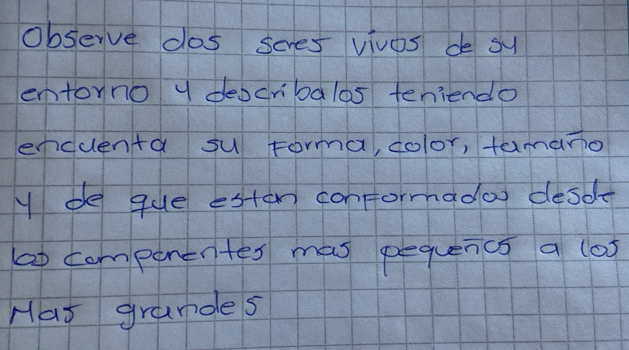 Observe dos seres vivos de su
entorno y descríbalos teniendo
encuenta su forma, color, tamaño
y de que estan conformados desde
los componentes mas pequeños a los
Mas grandes